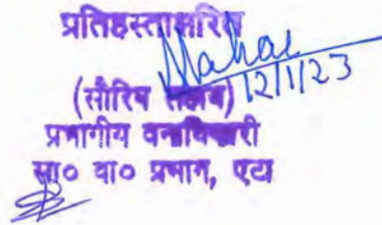 प्रतिहस्ताक्षरित
12/1/23
(सौरिष
प्रभागीय वनाधिकारी
सा० वा० प्रभाग, एटा